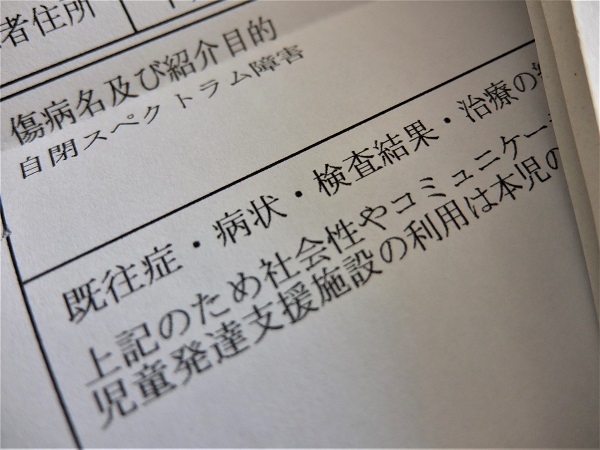 者住所
傷病名及び紹介目的
自閉スペクトラム障害
既往症・病状・検査結果・治療の
上記のため社会性やコミュニケー
児童発達支援施設の利用は本児の